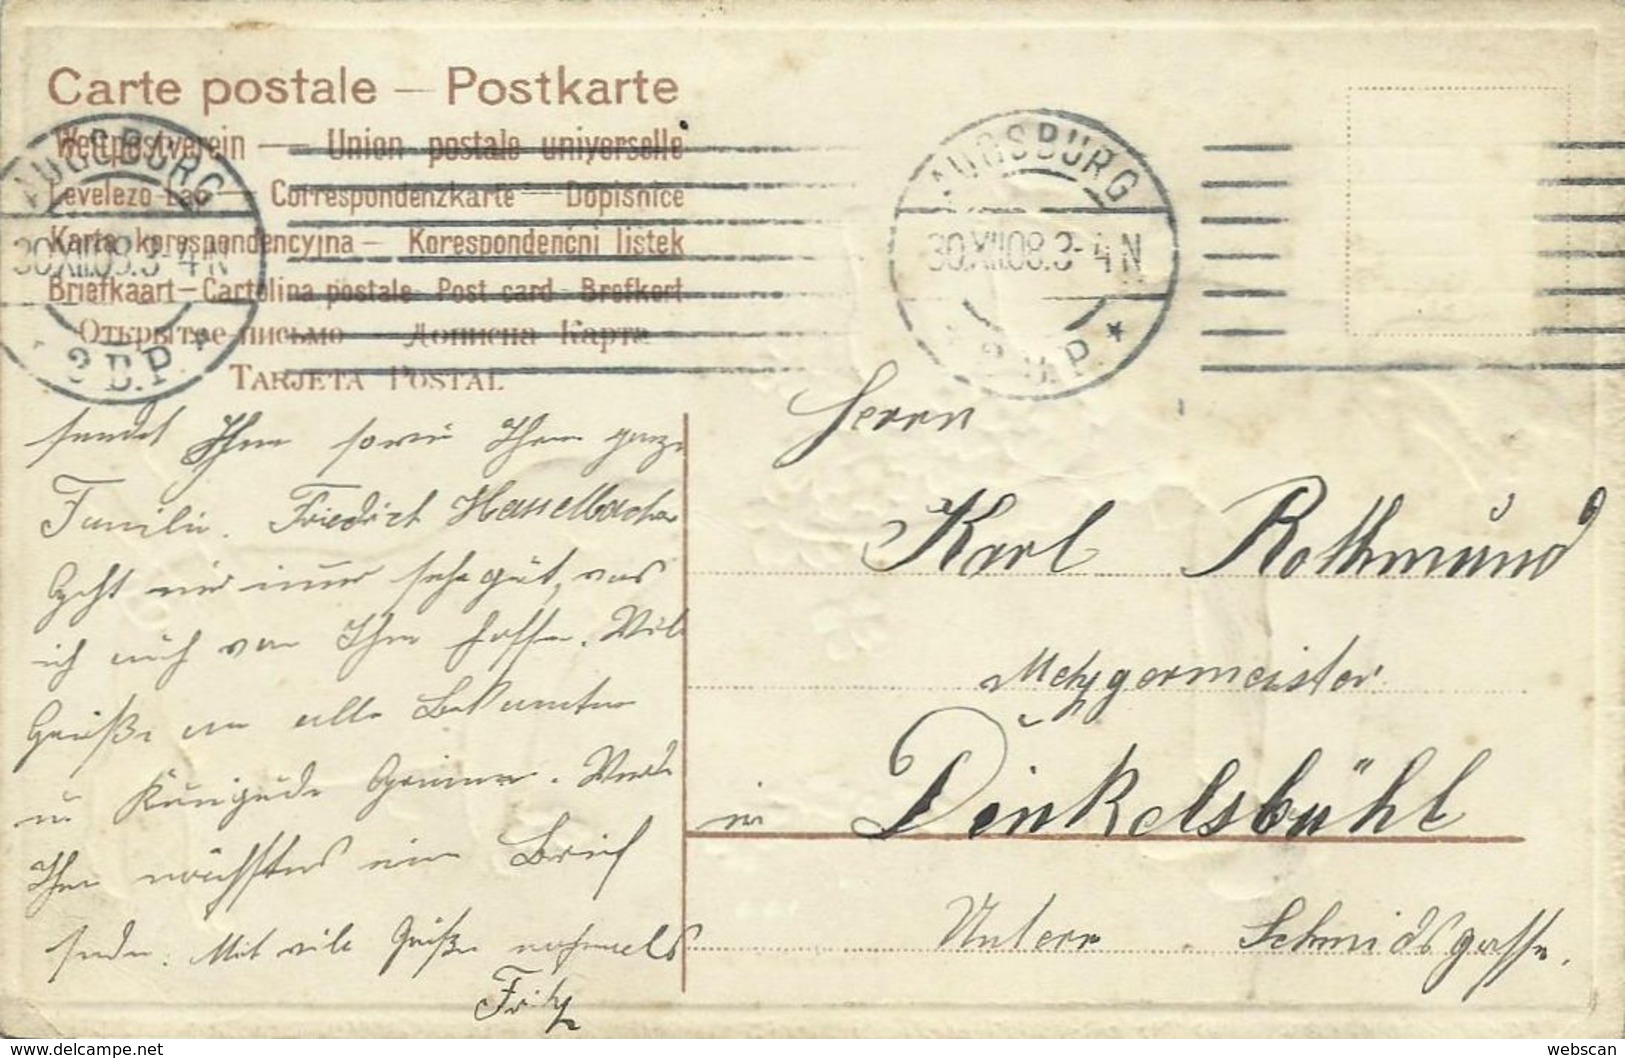 Carte postale — Postkarte
Weltpostverein — Union postale universelle
Levelező Lap — Correspondenzkarte — Dopisnice
Karta korespondencyjna — Korespondenčni listek
Briefkaart — Cartolina postale - Post card - Brefkort
Открытое письмо — Дописна Карта
TARJETA POSTAL
AUGSBURG
30.XII.08.3-4N
2 B.P.
AUGSBURG
30.XII.08.3-4N
2 B.P.
sendet Ihnen sowie Ihrer ganze
Familie. Friedrich Hasselbacher
Geht mir immer sehr gut, was
ich auch von Ihnen hoffe. Viele
Grüße an alle Bekannten
u. Kunigunde. Werde
Ihnen nächstens einen Brief
senden. Mit viele Grüße nochmals
Fritz
Herrn
Karl Rothmund
Metzgermeister
in Dinkelsbühl
Untere Schmidsgasse.
webscan